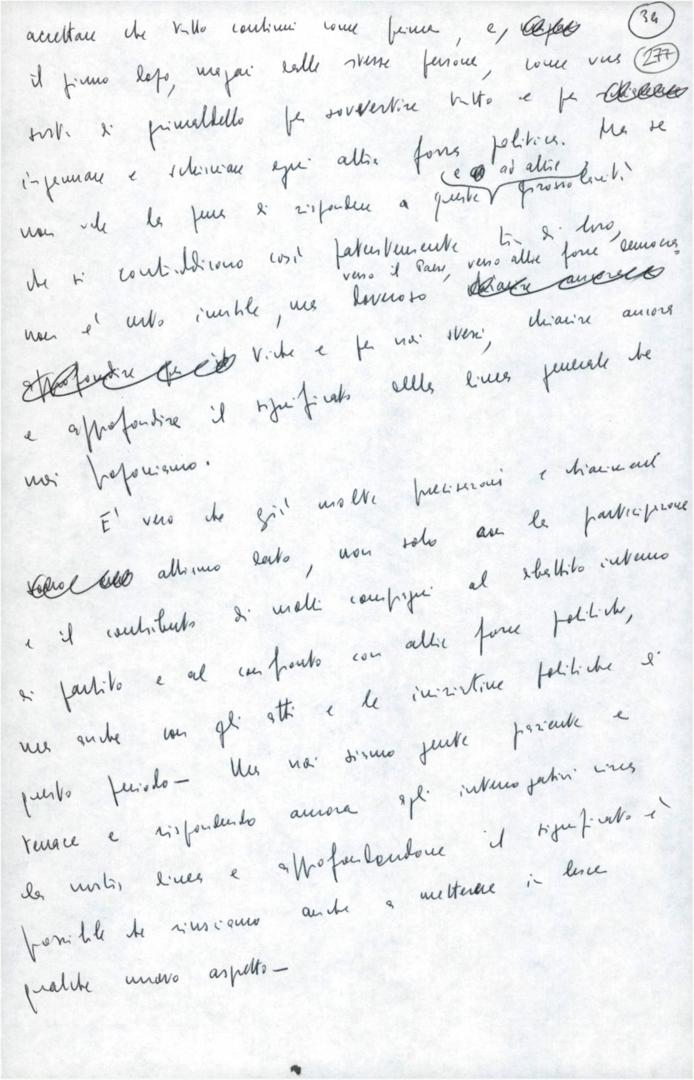 34
accettare che tutto continui come prima, e,
277
il giorno dopo, magari dalle stesse persone, come una
sorta di grimaldello per sovvertire tutto e per
ingannare e schiacciare ogni altra forza politica. Ma se
(e ad altre)
non vale la pena di rispondere a queste grossolanità
che si contraddicono così patentemente tra di loro,
verso il Paese, verso altre forze democra-
non è certo inutile, ma doveroso
tiche e per noi stessi, chiarire ancora
e approfondire il significato della linea generale che
noi proponiamo.
E' vero che già molte precisazioni e chiarimenti
abbiamo dato, non solo con la partecipazione
e il contributo di molti compagni al dibattito interno
di partito e al confronto con altre forze politiche,
ma anche con gli atti e le iniziative politiche di
questo periodo— Ma noi siamo gente paziente e
tenace e rispondendo ancora agli interrogativi circa
la nostra linea e approfondendone il significato è
possibile che riusciamo anche a mettere in luce
qualche nuovo aspetto—